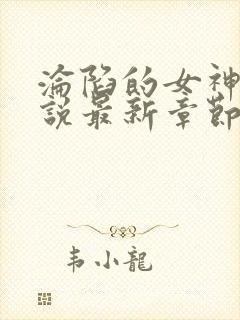 淪陷的女神
說最新章節
韦小龍